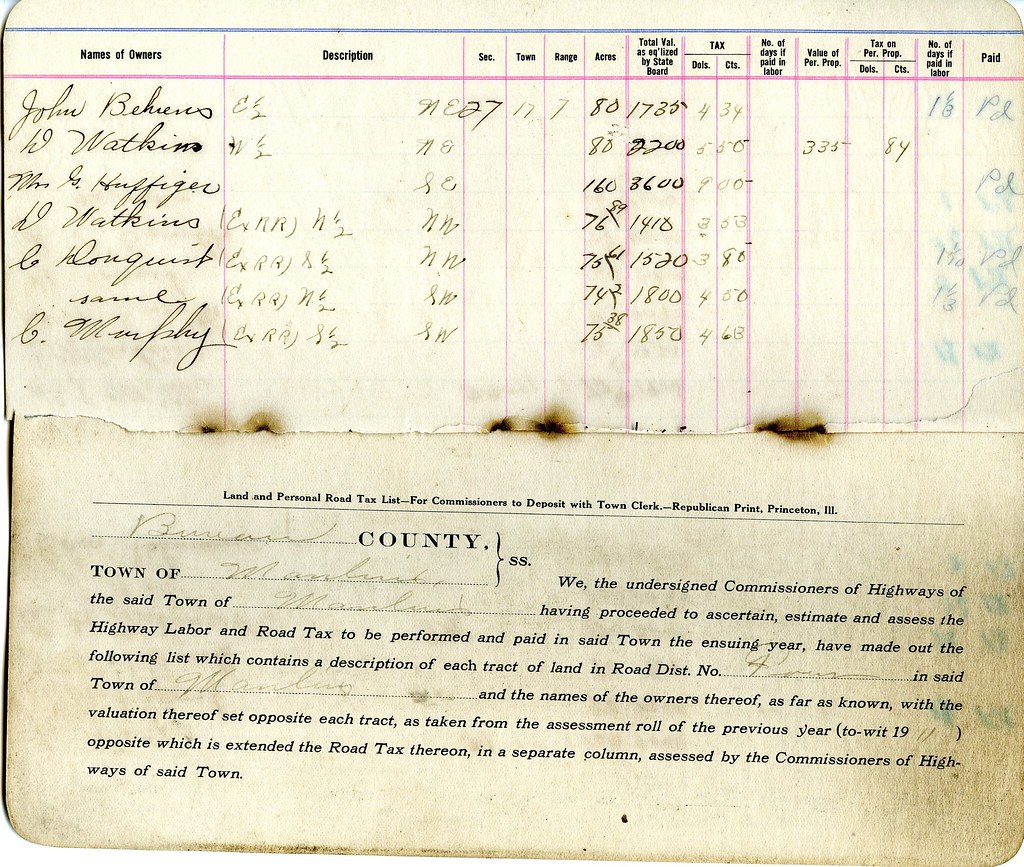 Names of Owners Description Sec. Town Range Acres Total Val. as eq'lized by State Board TAX Dols. Cts. No. of days if paid in labor Value of Per. Prop. Tax on Per. Prop. Dols. Cts. No. of days if paid in labor Paid
John Behrens E½ NE 27 17 7 80 1735 4 34 1⅓ Pd
D Watkins W½ NE 80 2200 5 50 335 84
Mrs G. Huffiger SE 160 3600 9 00 Pd
D Watkins (Ex RR) N½ NW 76 89 1410 3 53
C Donquist (Ex RR) S½ NW 75 61 1520 3 80 Pd
same (Ex RR) N½ SW 74 1800 4 50 1⅓ Pd
C. Murphy (Ex RR) S½ SW 75 38 1850 4 63
Land and Personal Road Tax List—For Commissioners to Deposit with Town Clerk.—Republican Print, Princeton, Ill.
Bureau COUNTY, } ss.
TOWN OF Manlius
We, the undersigned Commissioners of Highways of
the said Town of Manlius having proceeded to ascertain, estimate and assess the
Highway Labor and Road Tax to be performed and paid in said Town the ensuing year, have made out the
following list which contains a description of each tract of land in Road Dist. No. Four in said
Town of Manlius and the names of the owners thereof, as far as known, with the
valuation thereof set opposite each tract, as taken from the assessment roll of the previous year (to-wit 19 11 )
opposite which is extended the Road Tax thereon, in a separate column, assessed by the Commissioners of High-
ways of said Town.